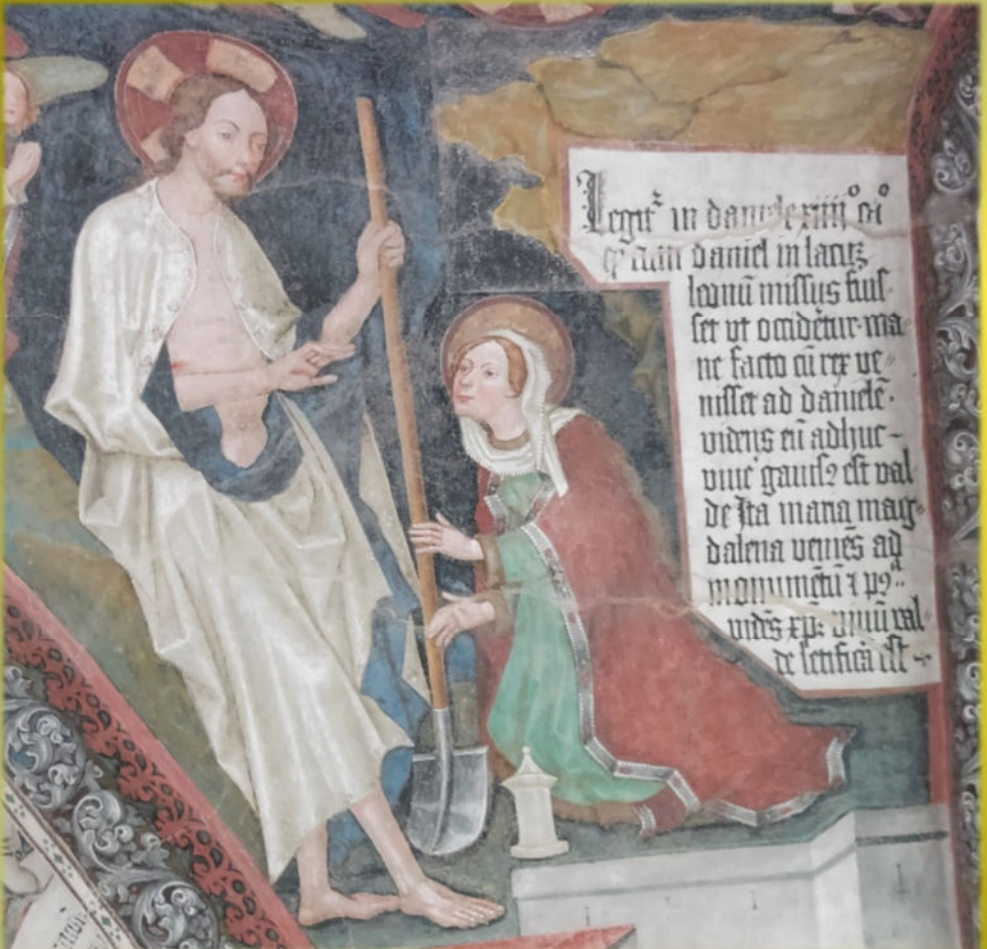 Legit᷑ in daniele xiiij° ca°
ꝙ cum daniel in lacū
leonū missus fuis-
set vt occidēr̄tur ma-
ne facto cū rex ve-
nisset ad danielē.
videns eū adhuc
viuū gauisꝰ est val-
de Ita maria mag-
dalena veniēs ad
monumētū ⁊ pꝰqᵃ
vidēs xp̄m viuū val-
de letificā est